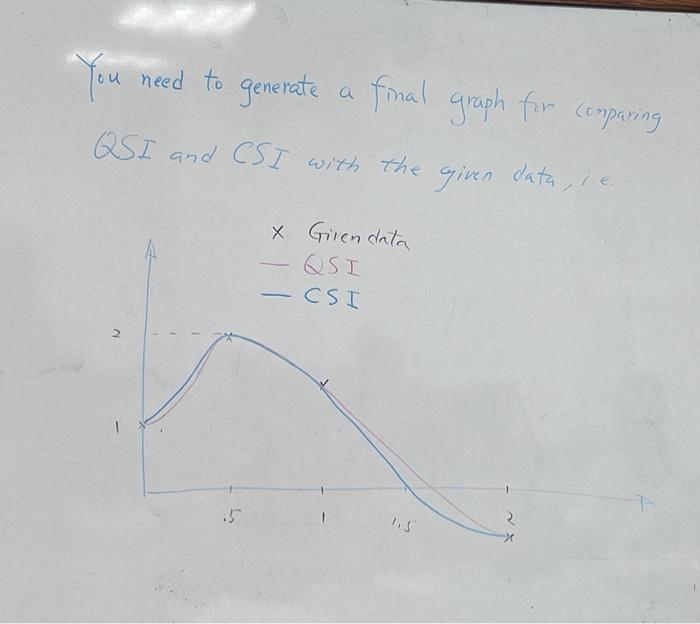 You need to generate a final graph for comparing
QSI and CSI with the given data, i.e.
x Given data
— QSI
— CSI
2
1
.5 1 1.5 2